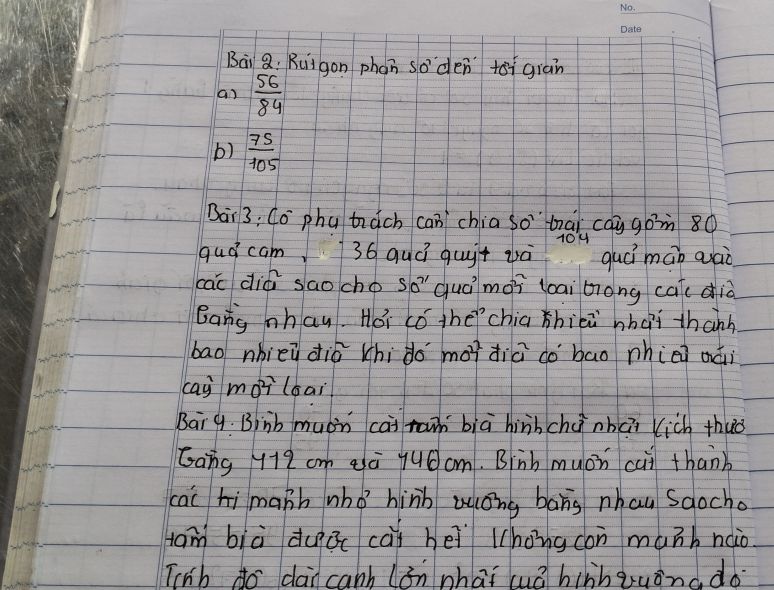 No.
Date
Bài 2: Rút gọn phân số đến tối giản
a) 56/84
b) 75/105
Bài 3: Cô phụ trách cần chia số trái cây gồm 80
quả cam, 36 quả quýt và 104 quả mận vào
các đĩa sao cho số quả mỗi loại trong các đĩa
bằng nhau. Hỏi có thể chia nhiều nhất thành
bao nhiêu đĩa khi đó mỗi đĩa có bao nhiêu trái
cây mỗi loại
Bài 4. Bình muốn cắt tấm bìa hình chữ nhật kích thước
bằng 112 cm và 140 cm. Bình muốn cắt thành
các mảnh nhỏ hình vuông bằng nhau sao cho
tấm bìa được cắt hết không còn mảnh nào.
Tính độ dài cạnh lớn nhất của hình vuông đó